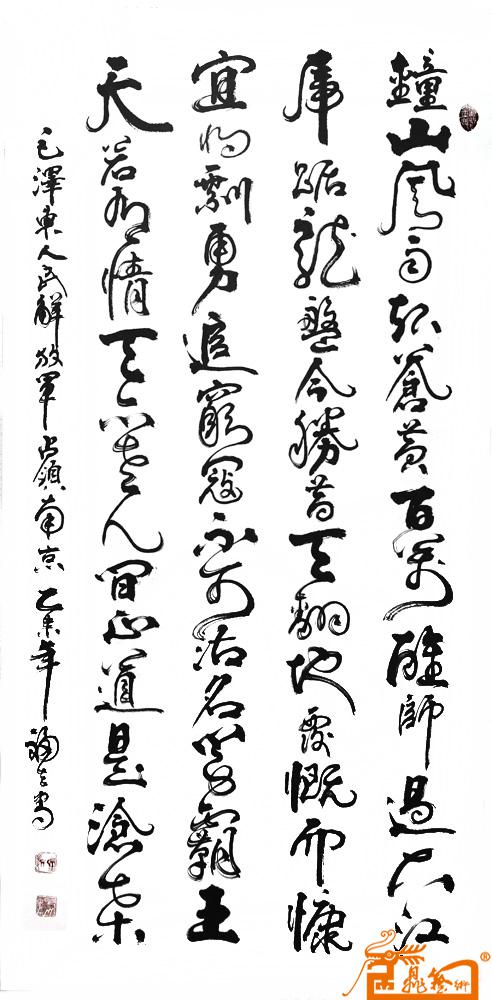 鐘山風雨起蒼黄百萬雄師過大江
虎踞龍盤今勝昔天翻地覆慨而慷
宜將剩勇追窮寇不可沽名學霸王
天若有情天亦老人間正道是滄桑
毛澤東人民解放軍占領南京 乙未年 書